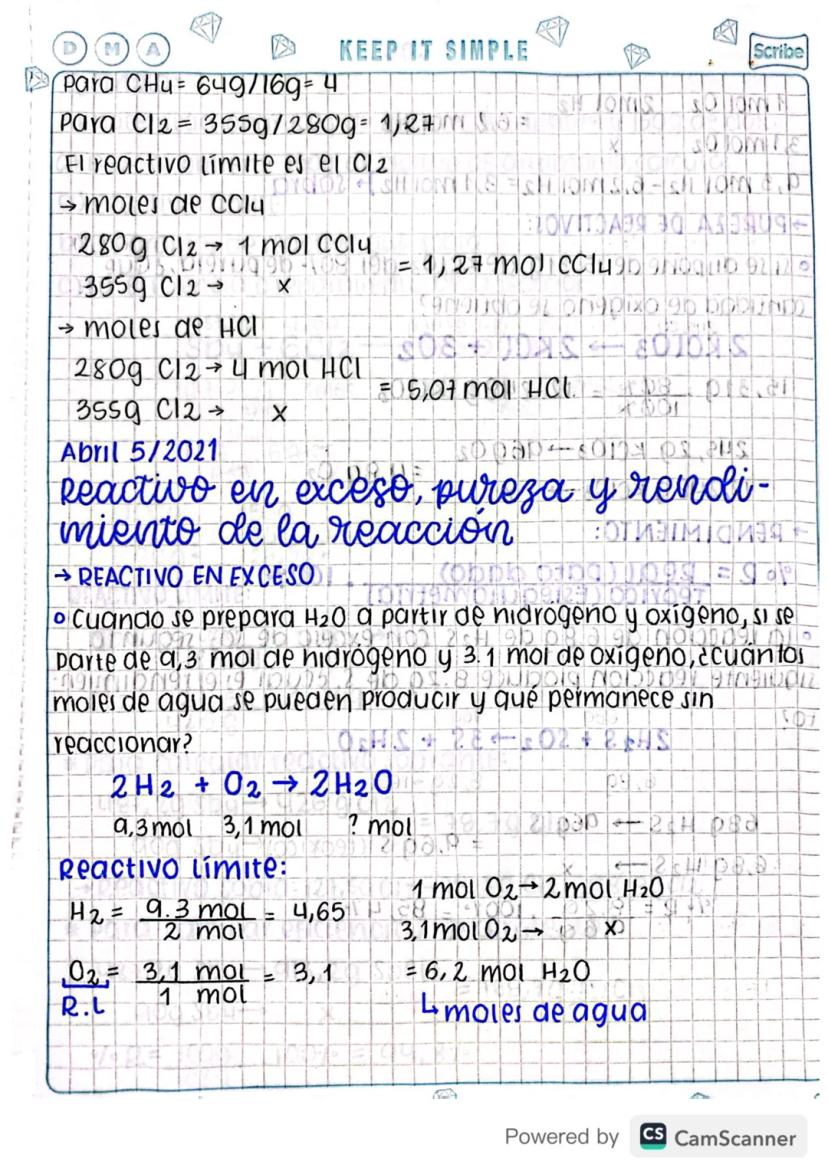 D M A KEEP IT SIMPLE Scribe
Para CH4 = 64g/16g = 4
Para Cl2 = 355g/280g = 1,27
El reactivo límite es el Cl2
→ moles de CCl4
280g Cl2 → 1 mol CCl4
355g Cl2 → x
= 1,27 mol CCl4
→ moles de HCl
280g Cl2 → 4 mol HCl
355g Cl2 → x
= 5,07 mol HCl
Abril 5/2021
Reactivo en exceso, pureza y rendi-
miento de la reacción
→ REACTIVO EN EXCESO
Cuando se prepara H2O a partir de hidrógeno y oxígeno, si se
parte de 9,3 mol de hidrógeno y 3.1 mol de oxígeno, ¿cuántos
moles de agua se pueden producir y qué permanece sin
reaccionar?
2H2 + O2 → 2H2O
9,3mol 3,1mol ? mol
Reactivo límite:
H2 = 9.3 mol / 2 mol = 4,65
O2 = 3,1 mol / 1 mol = 3,1
R.L
1 mol O2 → 2mol H2O
3,1mol O2 → x
= 6,2 mol H2O
↳ moles de agua
Powered by CS CamScanner